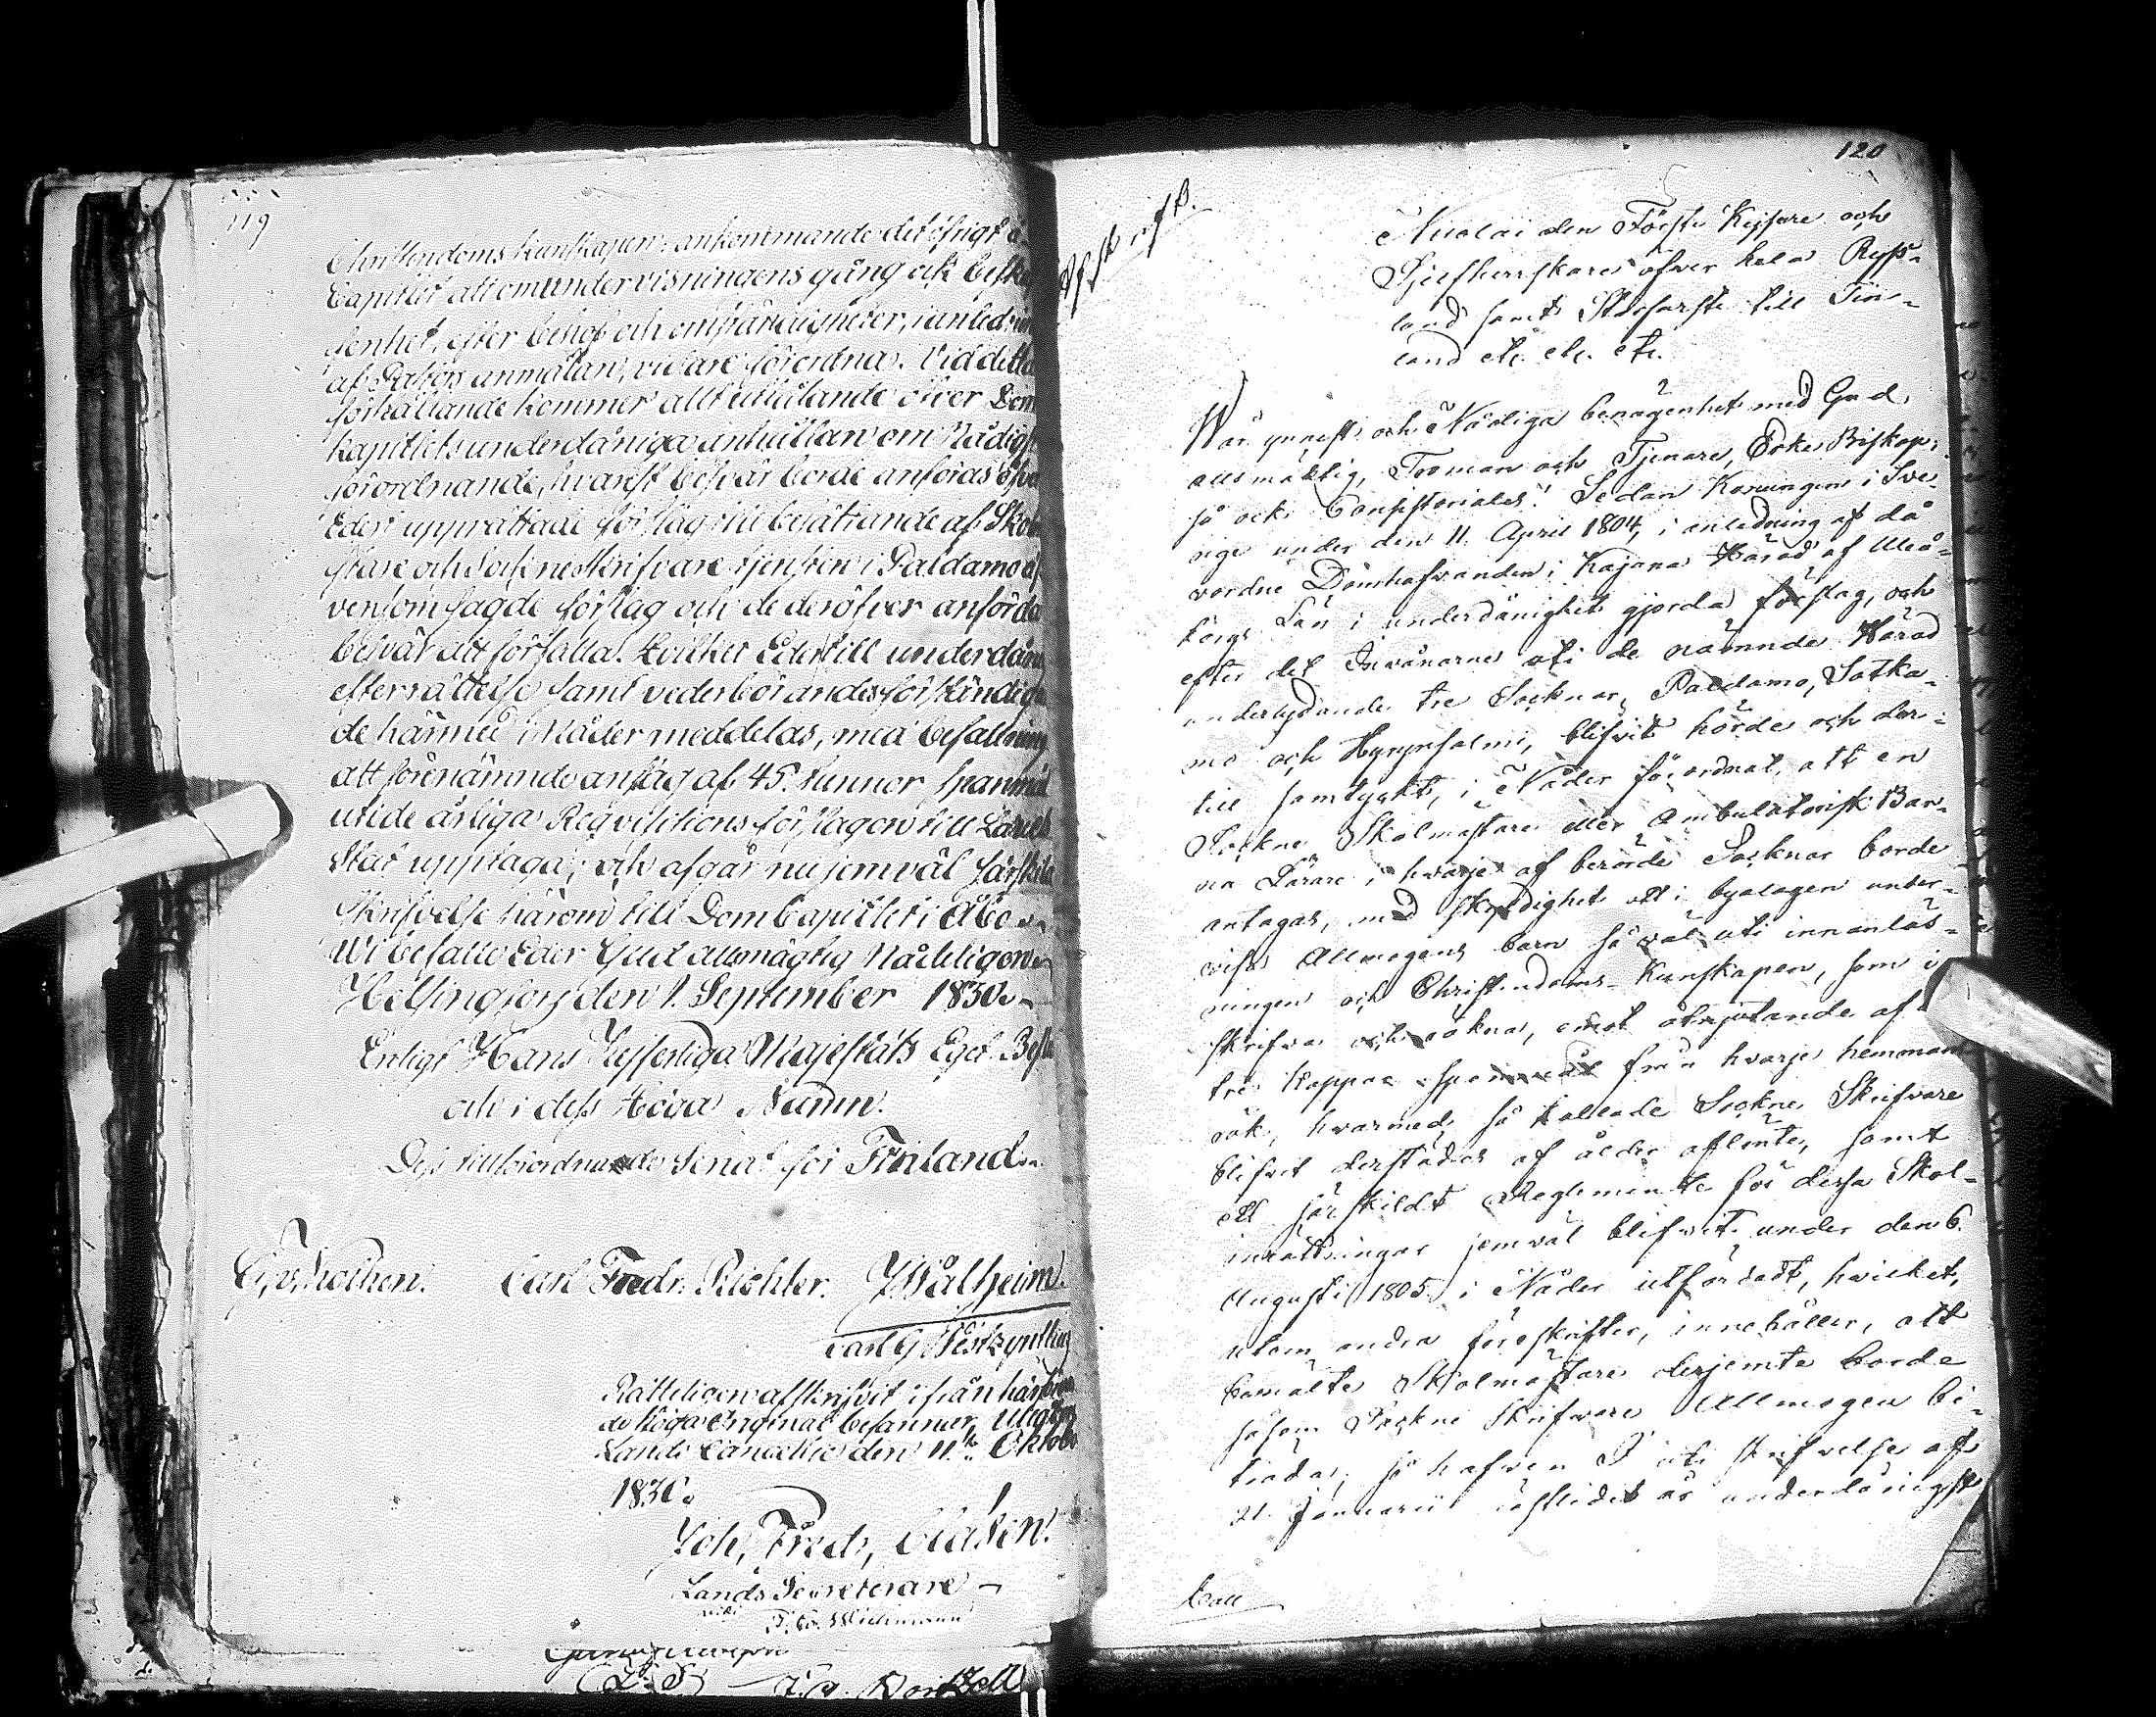 119
Christendoms kunskapen; ankommande det öfrigt å
Capitlet att om undervisningens gång och beska
fenhet, efter behof och omständigheter, i anledning
af Pastors anmälan, vidare förordna. Vid detta
förhållande kommer allt utlåtande öfver Dom
kapitlets underdåniga anhållan om Nådigt
förordnande, hvarest besvär borde anföras öfver
Eder upprättade förslag till besättande af Skolmä
stare och Sockne Skrifvare tjensten i Paldamo äf
vensom sagde förslag och de deröfver anförda
besvär att förfalla. Hvilket Eder till underdånig
efterrättelse samt vederbörandes förständigan
de härmed i Nåder meddelas, med befallning
att förenämnde anslag af 45 tunnor Spanmål
uti de årliga Reqvisitions förslagen till Länets
Stat upptaga; och afgår nu jemväl särskild
Skrifvelse härom till Dom Capitlet i Åbo
Wi befalle Eder Gud allsmägtig Nådeligen.
Helsingfors den 1. September 1830.
Enligt Hans Kejserliga Majestäts Eget Beslut
och i dess Höga Namn.
Dess tillförordnade Senat för Finland.
Carl Fredr. Richter. J. Wålheim.
Carl G. Westzynthius
Rätteligen afskrifvit ifrån härva
de höga Original befinner, Uleåborgs
Lands Cancellie den 11.te Oktober
1830.
Joh, Fredr,
Lands Secreterare
(L. S)
120
Nicolai den Förste Kejsare och
Sjelfherrskare öfver hela Ryss-
land samt Storfurste till Fin-
land etc. etc. etc.
Wår ynnest och Nådiga benägenhet med Gud
allsmäktig, Troman och Tjenare, Erke Biskop,
så ock Consistoriales! Sedan Konungen i Sve-
rige under den 11. April 1804, i anledning af då
vordne Domhafvanden i Kajana Härad af Uleå-
borgs Län i underdånighet gjorda förslag, och
efter det Invånarne uti de nämnde Härad
underlydande tre Socknar, Paldamo, Sotka-
mo och Hyrynsalmi, blifvit hörde och der-
till samtyckt, i Nåder förordnat, att en
Sockne Skolmästare eller Ambulatorisk Bar-
na Lärare i hvarje af berörde Socknar borde
antagas, med skyldighet att i byalagen under-
visa Allmogens barn så väl uti innanläs-
ningen och Christendoms-Kunskapen, som i
skrifva och räkna, emot åtnjutande af
tre Kappar Spannmål från hvarje hemmans
rök, hvarmed så kallade Sockne Skrifvare
blifvit derstädes af ålder aflönte, samt
ett särskildt Reglemente för dessa Skol-
inrättningar jemväl blifvit under den 6.
Augusti 1805 i Nåder utfärdadt, hvilket,
utom andra föreskrifter, innehåller, att
bemälte Skolmästare derjemte borde
såsom Sockne Skrifvare Allmogen bi-
träda; så hafven I uti skrifvelse af
21. Januarii sistlidet år underdånigst